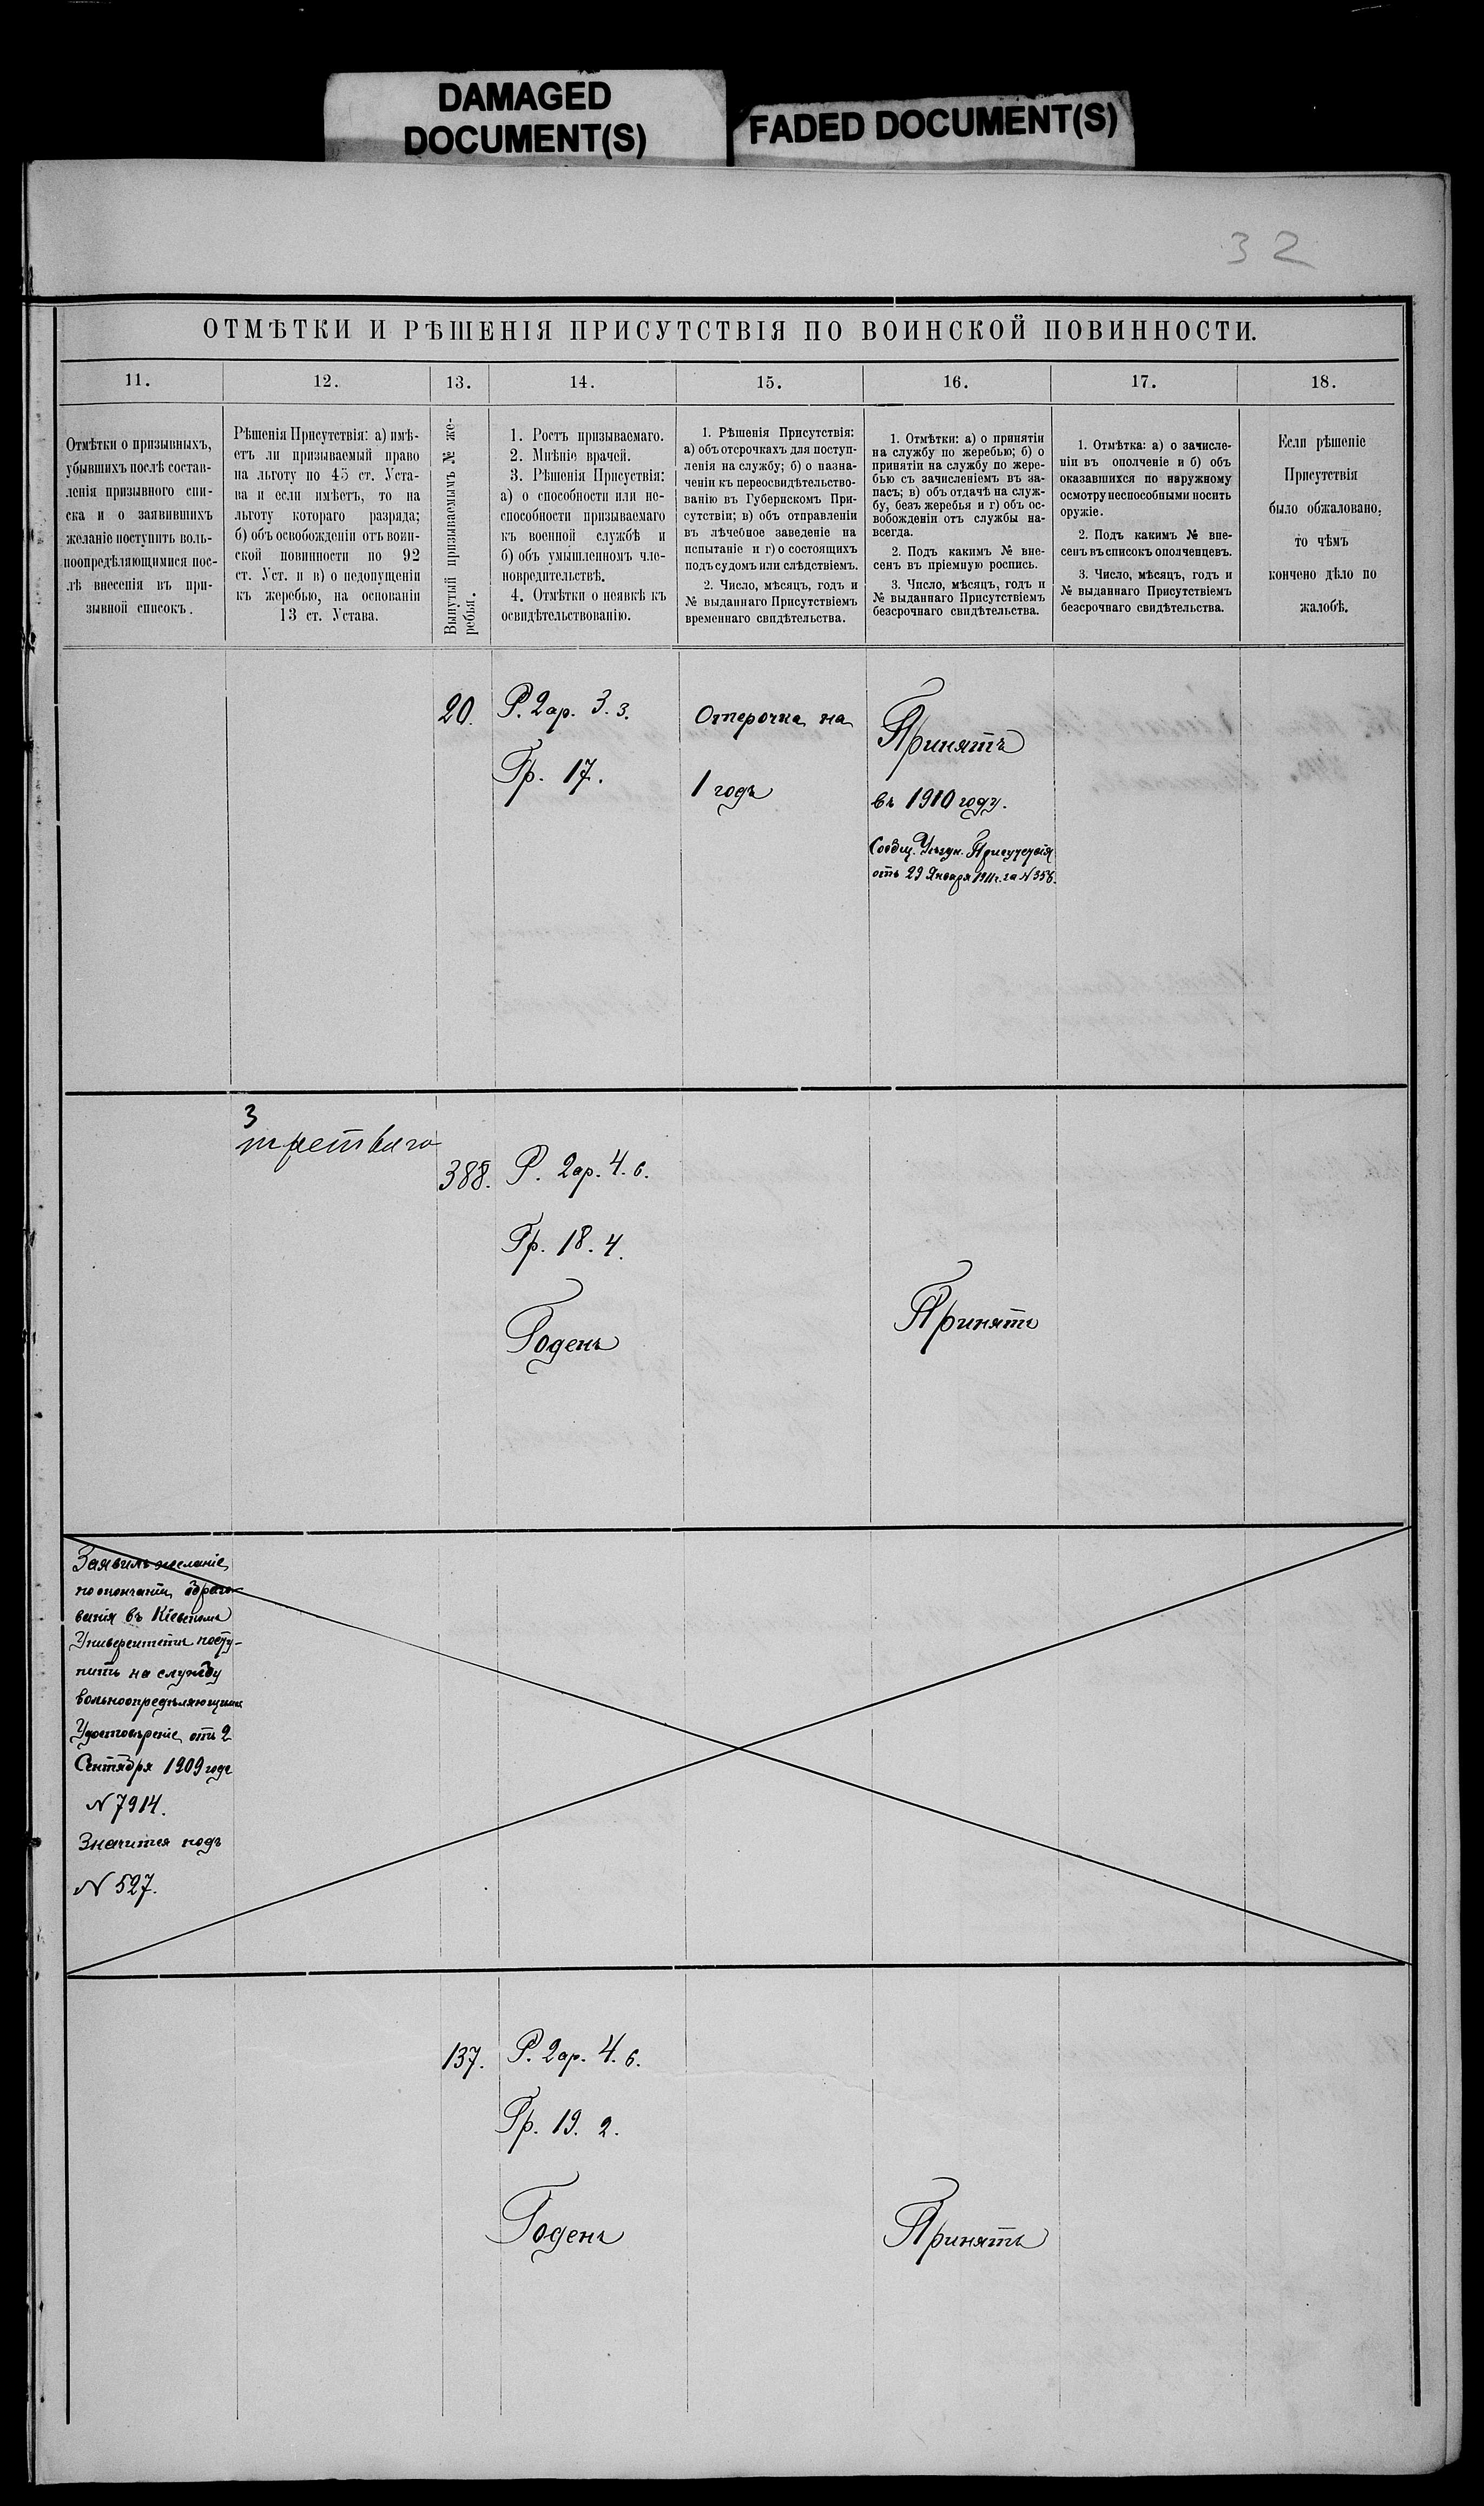 DAMAGED
DOCUMENT(S)
FADED DOCUMENT(S)
32
ОТМѢТКИ И РѢШЕНІЯ ПРИСУТСТВІЯ ПО ВОИНСКОЙ ПОВИННОСТИ.
11.
12.
13.
14.
15.
16.
17.
18.
Отмѣтки о призывныхъ,
убывшихъ послѣ состав-
ленія призывного спи-
ска и о заявившихъ
желаніе поступить воль-
ноопредѣляющимися пос-
лѣ внесенія въ при-
зывной списокъ.
Рѣшенія Присутствія: а) имѣ-
етъ ли призываемый право
на льготу по 45 ст. Уста-
ва и если имѣетъ, то на
льготу котораго разряда;
б) объ освобожденіи отъ воин-
ской повинности по 92
ст. Уст. и в) о недопущеніи
къ жеребью, на основаніи
13 ст. Устава.
Вынутый призываемымъ № же-
ребья.
1. Ростъ призываемаго.
2. Мнѣніе врачей.
3. Рѣшенія Присутствія:
а) о способности или не-
способности призываемаго
къ военной службѣ и
б) объ умышленномъ чле-
новредительствѣ.
4. Отмѣтки о неявкѣ къ
освидѣтельствованію.
1. Рѣшенія Присутствія:
а) объ отсрочкахъ для поступ-
ленія на службу; б) о назна-
ченіи къ переосвидѣтельство-
ванію въ Губернскомъ При-
сутствіи; в) объ отправленіи
въ лѣчебное заведеніе на
испытаніе и г) о состоящихъ
подъ судомъ или слѣдствіемъ.
2. Число, мѣсяцъ, годъ и
№ выданнаго Присутствіемъ
временнаго свидѣтельства.
1. Отмѣтки: а) о принятіи
на службу по жеребью; б) о
принятіи на службу по жере-
бью съ зачисленіемъ въ за-
пасъ; в) объ отдачѣ на служ-
бу, безъ жеребья и г) объ ос-
вобожденіи отъ службы на-
всегда.
2. Подъ какимъ № вне-
сенъ въ пріемную роспись.
3. Число, мѣсяцъ, годъ и
№ выданнаго Присутствіемъ
безсрочнаго свидѣтельства.
1. Отмѣтка: а) о зачисле-
ніи въ ополченіе и б) объ
оказавшихся по наружному
осмотру неспособными носить
оружіе.
2. Подъ какимъ № вне-
сенъ въ списокъ ополченцевъ.
3. Число, мѣсяцъ, годъ и
№ выданнаго Присутствіемъ
безсрочнаго свидѣтельства.
Если рѣшеніе
Присутствія
было обжаловано,
то чѣмъ
кончено дѣло по
жалобѣ.
20.
Р. 2 ар. 3. 3.
Гр. 17.
Отсрочка на
1 годъ
Принятъ
въ 1910 году.
Сообщ. Уѣздн. Присутствія
отъ 29 Января 1911 г. за N 356.
3
третьяго
388.
Р. 2 ар. 4. 6.
Гр. 18. 4.
Годенъ
Принятъ
Заявилъ желаніе
по окончаніи образо-
ванія въ Кіевскомъ
Университетѣ посту-
пить на службу
вольноопредѣляющимся
Удостовѣреніе отъ 2
Сентября 1909 года
N 7914.
Значится подъ
N 527.
137.
Р. 2 ар. 4. 6.
Гр. 19. 2.
Годенъ
Принятъ